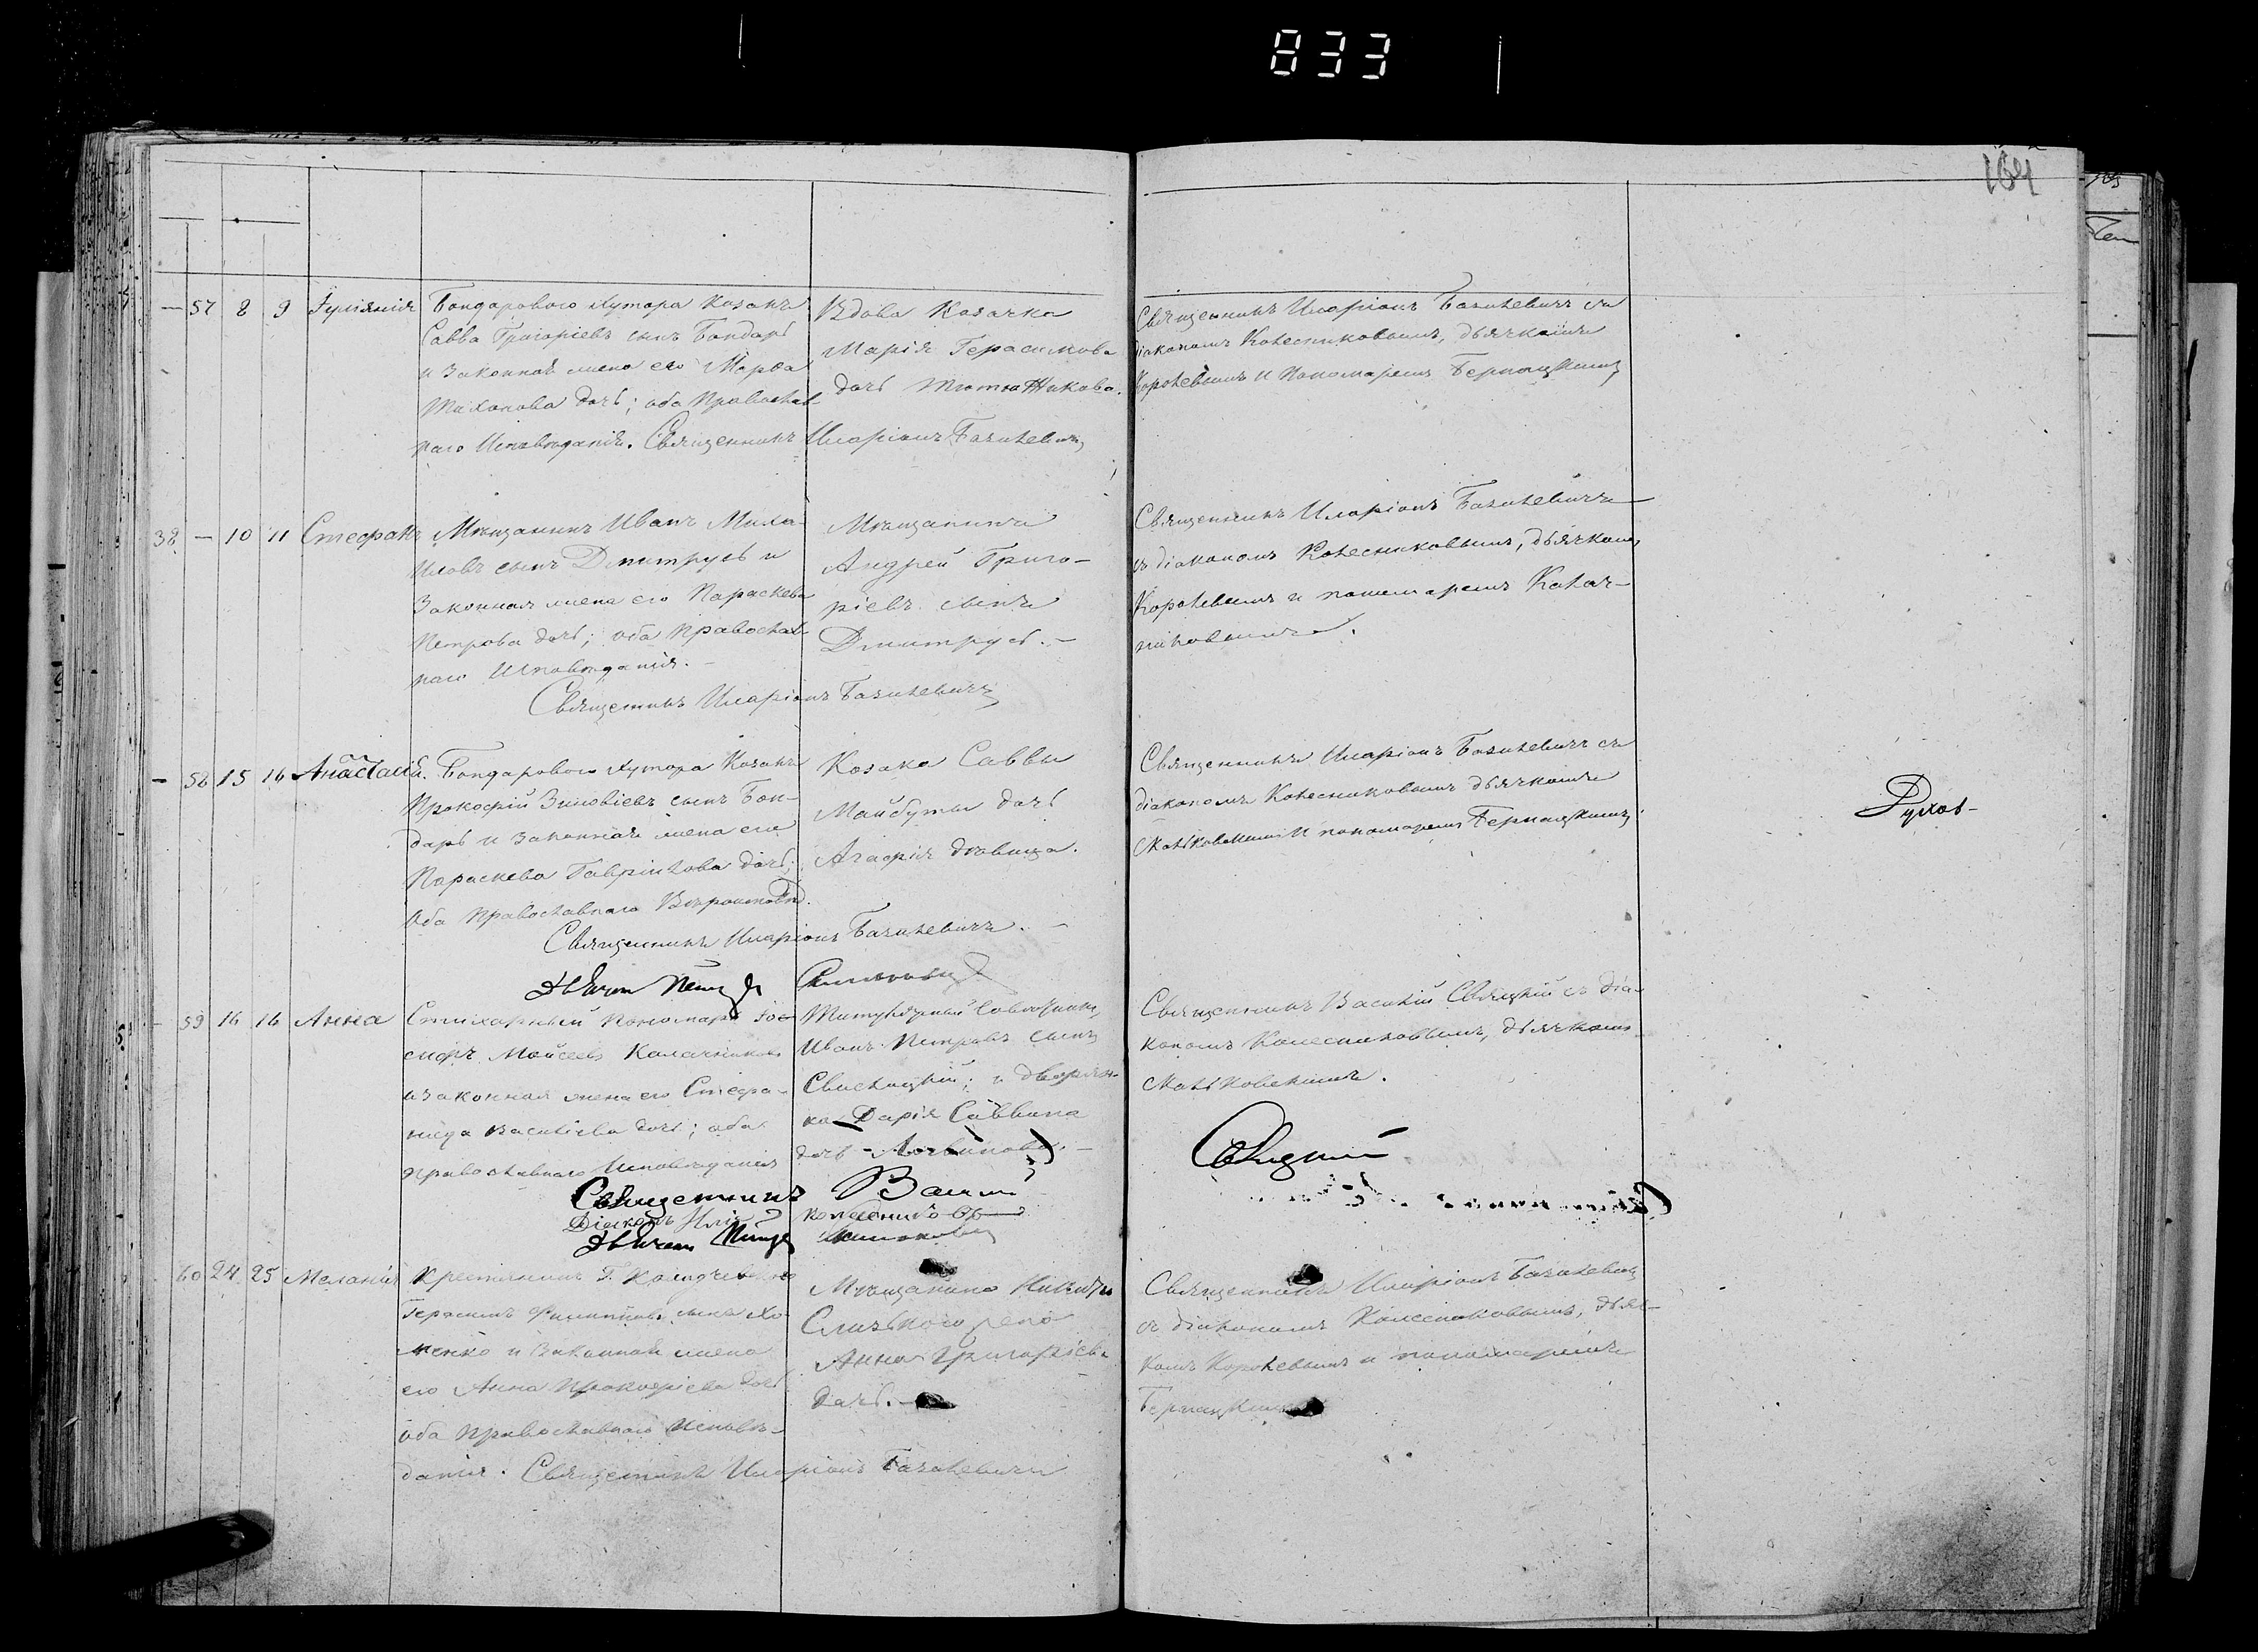 833
164
57 8 9 Іуліянія Бондарового Хутора Козакъ
Савва Григоріевъ сынъ Бондарь
и законная жена его Марѳа
Тихонова дочь; оба Православ-
наго Исповѣданія. Священникъ Иларіонъ Базилевичъ
Вдова Козачка
Марія Герасимова
дочь
Священникъ Иларіонъ Базилевичъ съ
діакономъ Колесниковымъ, дьячкомъ
Королевымъ и пономаремъ
38 – 10 11 Стефанъ Мѣщанинъ Иванъ Миха-
иловъ сынъ Дмитрусь и
Законная жена его Параскева
Петрова дочь; оба Православ-
наго Исповѣданія. –
Священникъ Иларіонъ Базилевичъ
Мѣщанинъ
Андрей Григо-
ріевъ сынъ
Дмитрусь. –
Священникъ Иларіонъ Базилевичъ
съ діакономъ Колесниковымъ, дьячкомъ
Королевымъ и пономаремъ Калач-
никовымъ.
– 58 15 16 Анастасія. Бондарового Хутора Козакъ
Прокофій Зиновіевъ сынъ Бон-
дарь и законная жена его
Параскева Гавріилова дочь;
Оба Православнаго
Священникъ Иларіонъ Базилевичъ. –
Козака Саввы
Майбуты дочь
Агафія дѣвица.
Священникъ Иларіонъ Базилевичъ съ
діакономъ Колесниковымъ дьячкомъ
и пономаремъ
59 16 16 Анна Стихарный Пономарь Іо-
сифъ Моисеевъ Калачниковъ
и законная жена его Стефа-
нида Василіева дочь; оба
православнаго Исповѣданія
Священникъ
Діаконъ
Титулярный Совѣтникъ
Иванъ Петровъ сынъ
и дворян-
ка Дарія Саввина
дочь
Священникъ Василій Свяцкій съ діа-
кономъ Колесниковымъ, дьячкомъ
60 24 25 Меланія Крестьянинъ Г.
Герасимъ Филипповъ сынъ Хо-
менко и Законная жена
его Анна Прокофіева дочь
оба Православнаго Исповѣ-
данія. Священникъ Иларіонъ Базилевичъ
Мѣщанина Никиты
Анна Григоріева
дочь. –
Священникъ Иларіонъ Базилевичъ
съ діакономъ Колесниковымъ, дьяч-
комъ Королевымъ и пономаремъ